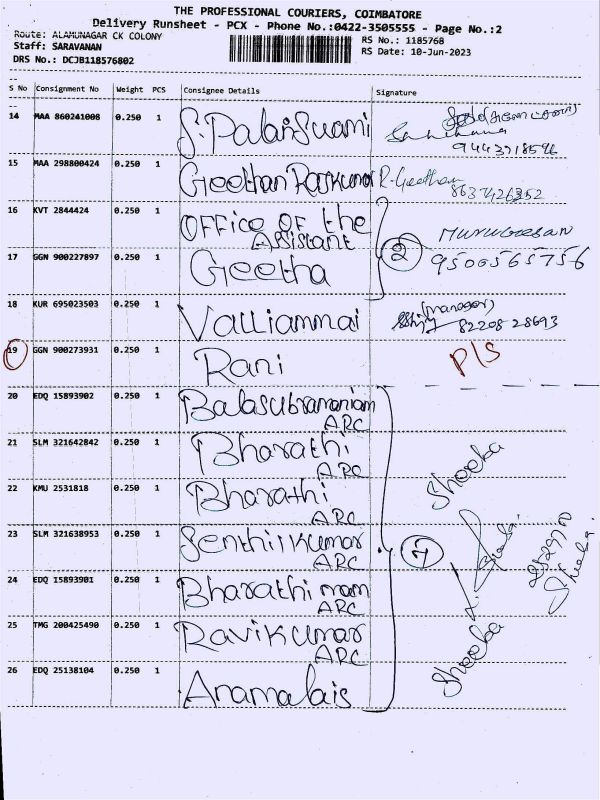 THE PROFESSIONAL COURIERS, COIMBATORE
Delivery Runsheet - PCX - Phone No.:0422-3505555 - Page No.:2
Route: ALAMUNAGAR CK COLONY
RS No.: 1185768
Staff: SARAVANAN
RS Date: 10-Jun-2023
DRS No.: DCJB118576802
S No Consignment No Weight PCS Consignee Details Signature
14 MAA 860241008 0.250 1 S. PalaniSwami
9443718596
15 MAA 298800424 0.250 1 Geethan Rajkumar R-Geetham
8637426352
16 KVT 2844424 0.250 1 OFFice OF the
Assistant
2 Murugesan
17 GGN 900227897 0.250 1 Geetha 9500565756
18 KUR 695023503 0.250 1 Valliammai (manager)
82208 28693
19 GGN 900273931 0.250 1 Rani P/S
20 EDQ 15893902 0.250 1 Balasubramaniam
ARC
21 SLM 321642842 0.250 1 Bharathi
ARC
Shooba
22 KMU 2531818 0.250 1 Bharathi
ARC
23 SLM 321638953 0.250 1 Senthilkumar
ARC
7
24 EDQ 15893901 0.250 1 Bharathi mam
ARC
25 TMG 200425490 0.250 1 Ravikumar
ARC
Shooba
26 EDQ 25138104 0.250 1 Anamalais